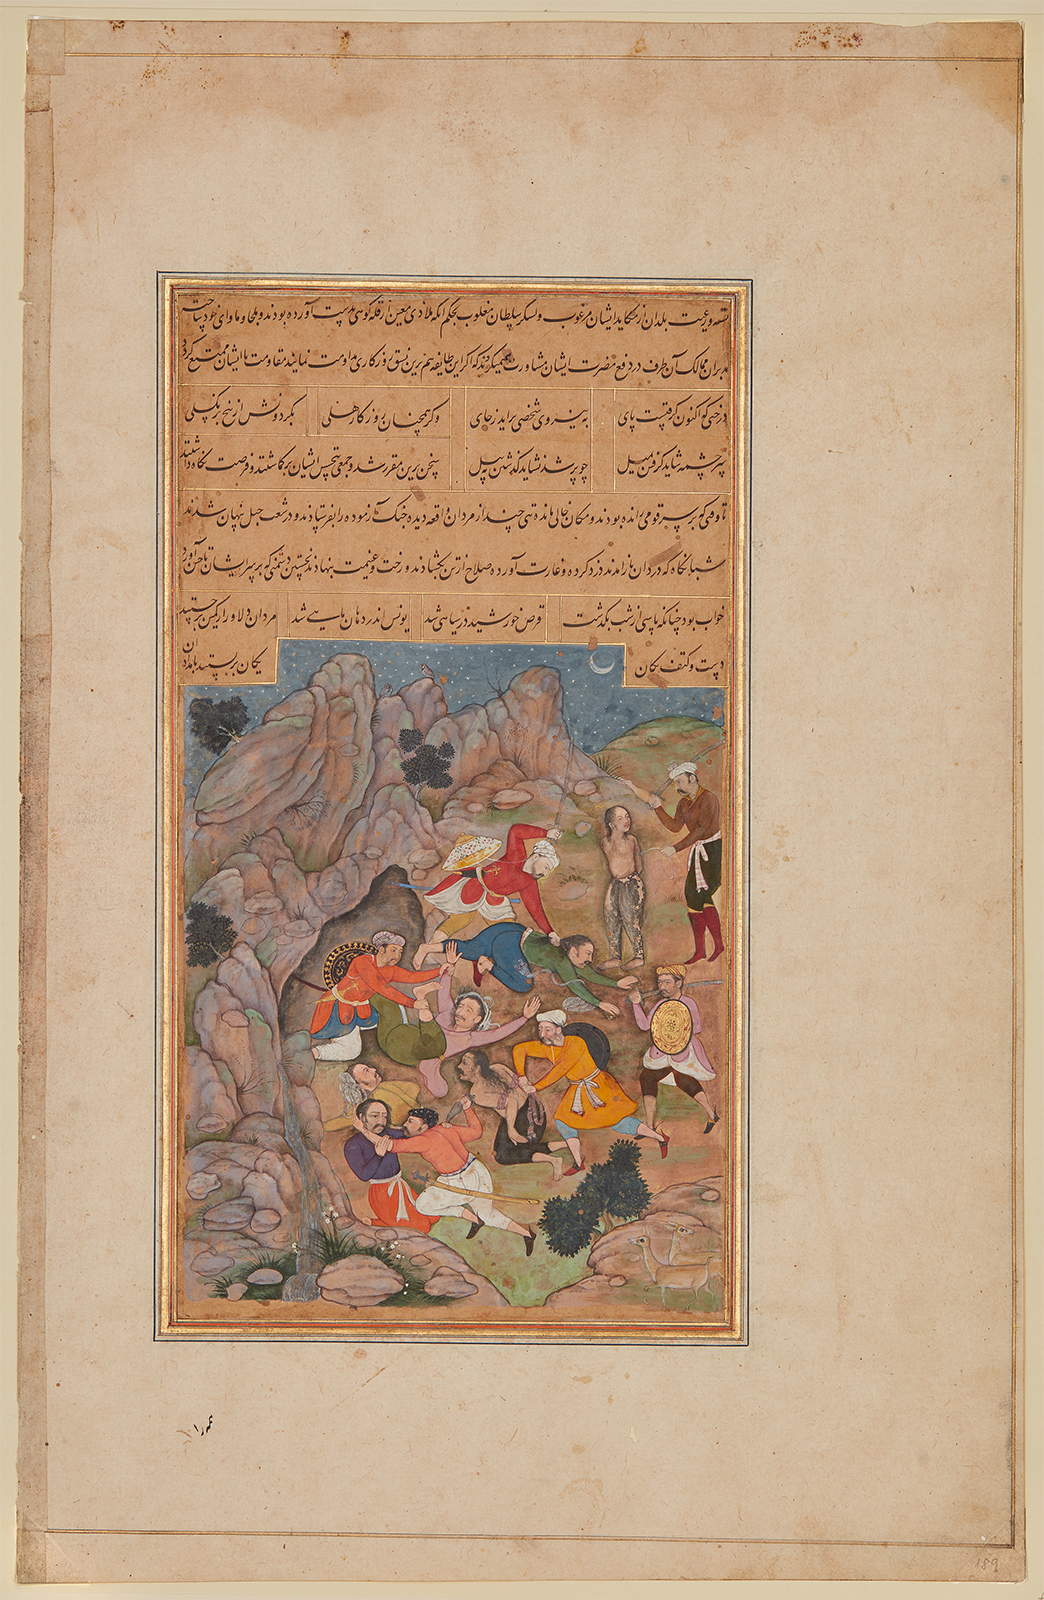 بسته و رعیت بلدان از مکاید ایشان مرعوب و لشکر سلطان مغلوب بحکم آنکه ملاذی معین از قله کوهی بدست آورده بودند و ملجا و ماوای خود ساخته
مدبران ممالک آن طرف در دفع مضرت ایشان مشاورت همیکردند که اکر این طایفه هم برین نسق روزکاری مداومت نمایند مقاومت با ایشان ممتنع کردد
درختی که اکنون کرفتست پای به نیروی شخصی براید ز جای وکر همچنان روزکار هلی بکردونش از بیخ بر نکسلی
سر چشمه شاید کرفتن بمیل چو پر شد نشاید کذشتن به پیل سخن برین مقرر شد و جمعی بتجسس ایشان برکماشتند و فرصت نکاه داشتند
تا وقتی که بر سر قومی رانده بودند و مکان خالی مانده تنی چند از مردان واقعه دیده جنک آزموده را بفرستادند و در شعب جبل پنهان شدند
شبانکاه که دزدان بازآمدند دزد کرده و غارت آورده صلاح از تن بکشادند و رخت و غنیمت بنهادند نخستین دشمنی که بر سر ایشان تاختن آورد
خواب بود چندانکه پاسی از شب بکذشت قرص خورشید در سیاهی شد یونس اندر دهان ماهی شد مردان دلاور از کمین بر جستند
دست و کتف یکان یکان بر بستند بامدادان
همه را
189